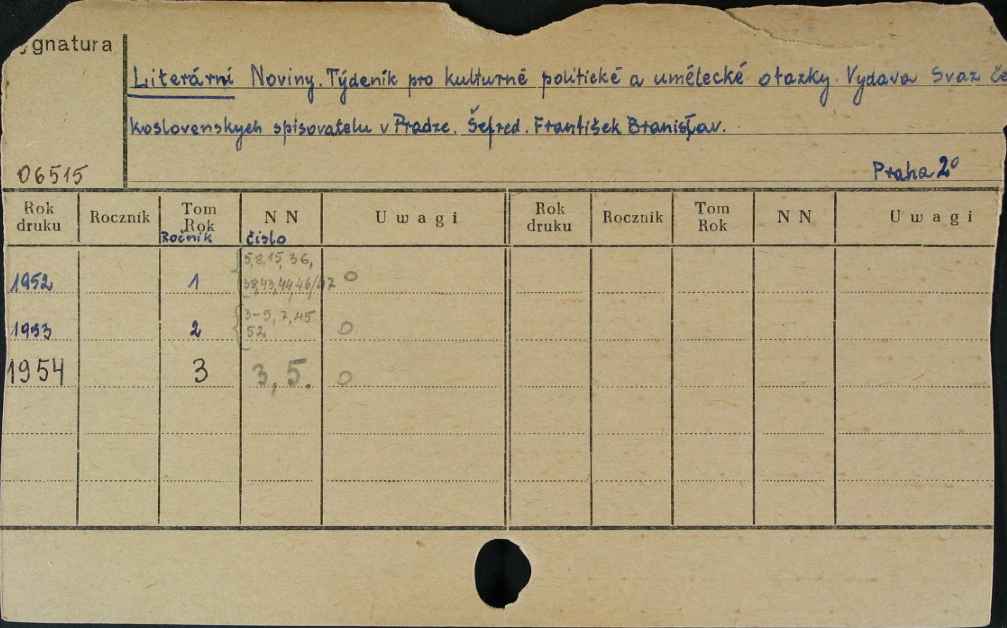 ygnatura
Literární Noviny. Týdeník pro kulturně politické a umělecké otazky. Vydava Svaz če
koslovenskych spisovatelu v Pradze. Šefred. František Branisłav.
06515
Praha 2°
Rok druku Rocznik Tom Rok NN Uwagi Rok druku Rocznik Tom Rok NN Uwagi
Ročnik číslo
5,8,15, 36,
1952 1 38,43,44,46/47 0
3-5, 7, 45
1953 2 52 0
1954 3 3, 5. 0